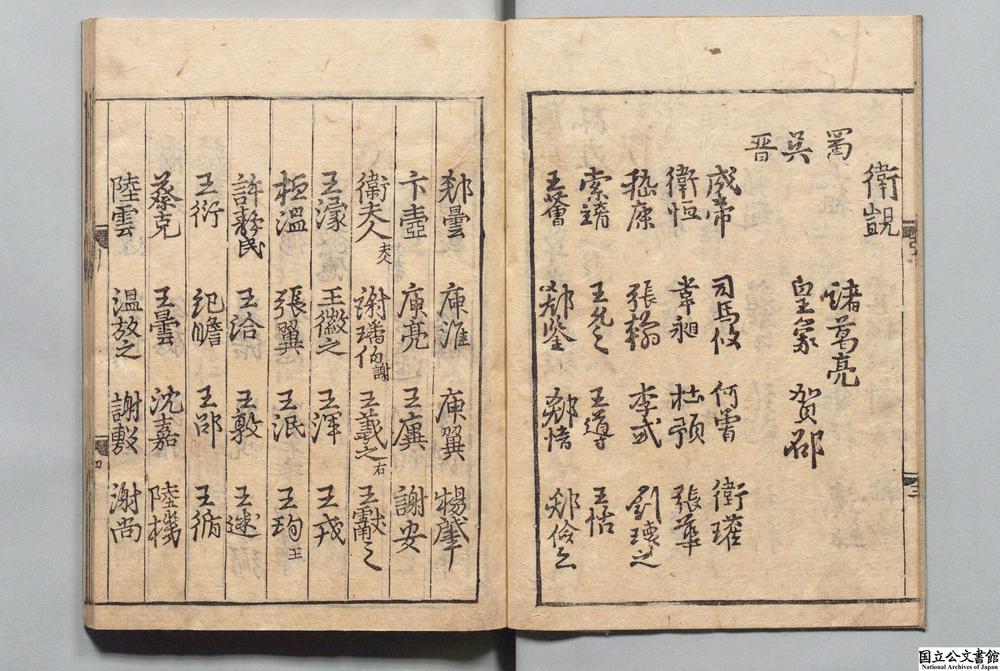 衛覬
蜀 諸葛亮
吳 皇象 賀邵
晋
成帝 司馬攸 何曾 衛瓘
衛恒 韋昶 杜預 張華
嵇康 張翰 李式 劉瓌之
索靖 王允之 王導 王恬
王薈 郄鑒 郄愔 郄儉之
三
郄曇 庾准 庾翼 楊肇
卞壺 庾亮 王廙 謝安
衛夫人 夫人 謝璠伯 謝 王羲之 右 王獻之
王濛 王徽之 王渾 王戎
桓溫 張翼 王泯 王珣 王
許靜民 王洽 王敦 王逑
王衍 紀瞻 王邵 王循
蔡克 王曇 沈嘉 陸機
陸雲 温放之 謝敷 謝尚
四
国立公文書館
National Archives of Japan